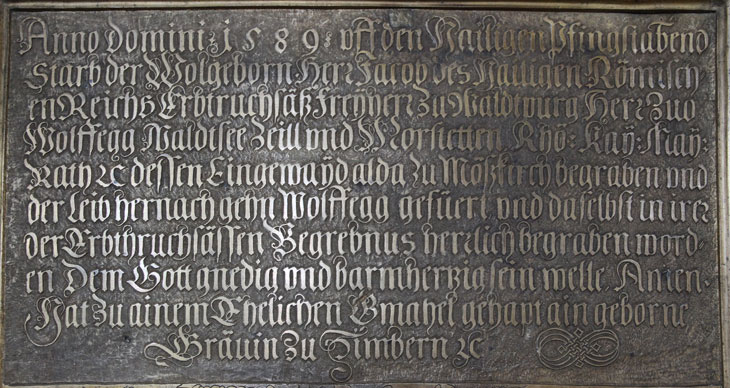 Anno Domini · 1589 · vff den Hailigen Pfingstabend
Starb der Wolgeborn Herr Jacob des Hailigen Römisch-
en Reichs Erbtruchsäß Freyherr zu Waldtburg Herr zuo
Wolffegg Waldtsee Zeill vnd Morstetten Rhö: Kay: May:
Rath ꝛc dessen Eingewayd alda zu Mößkirch begraben vnd
der Leib hernach gehn Wolffegg gefüert vnd daselbst in irer
der Erbthruchsässen Begrebnus herrlich begraben word-
en Dem Gott gnedig vnd barmhertzig sein welle Amen
Hat zu ainem Ehelichen Gmahel gehapt ain geborne
Gräuin zu Zimbern ꝛc